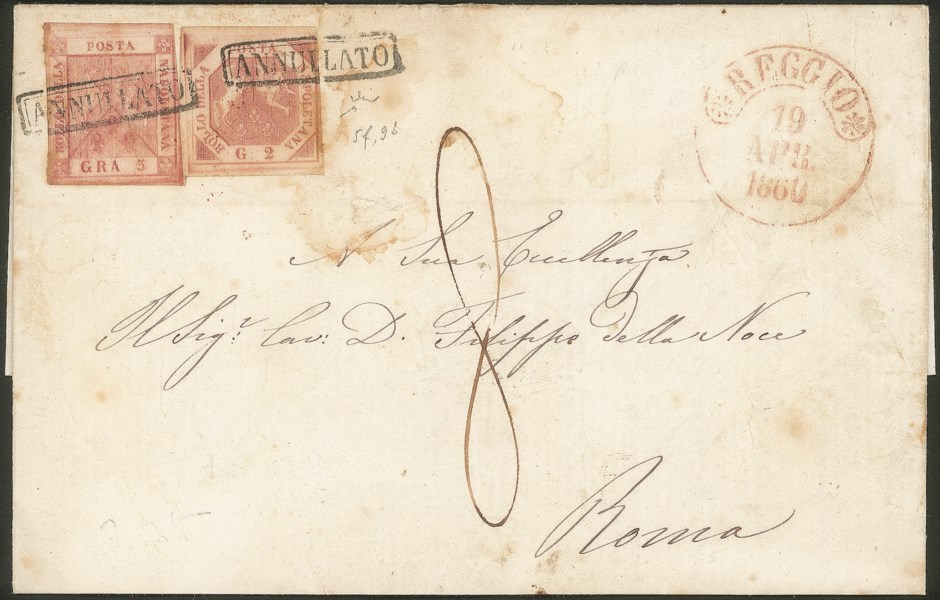 POSTA
BOLLO DELLA
NAPOLETANA
GRA 5
ANNULLATO
POSTA
BOLLO DELLA
NAPOLETANA
G. 2
ANNULLATO
5f, 9b
REGGIO
19
APR.
1860
8
A Sua Eccellenza
Il Sigr. Cav: D. Filippo della Noce
Roma